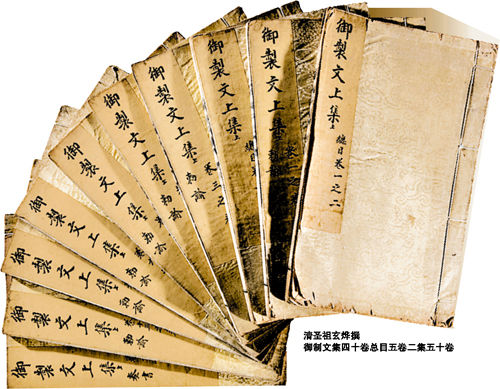 御製文上集 總目卷一之二
御製文上集
御製文上集 總目卷三之
御製文上集 勅諭
御製文上集 勅諭
御製文上集 勅諭
御製文上集 勅諭
御製文上集 勅諭
御製文上集 勅諭
御製文上集 奏書
清圣祖玄烨撰
御制文集四十卷总目五卷二集五十卷